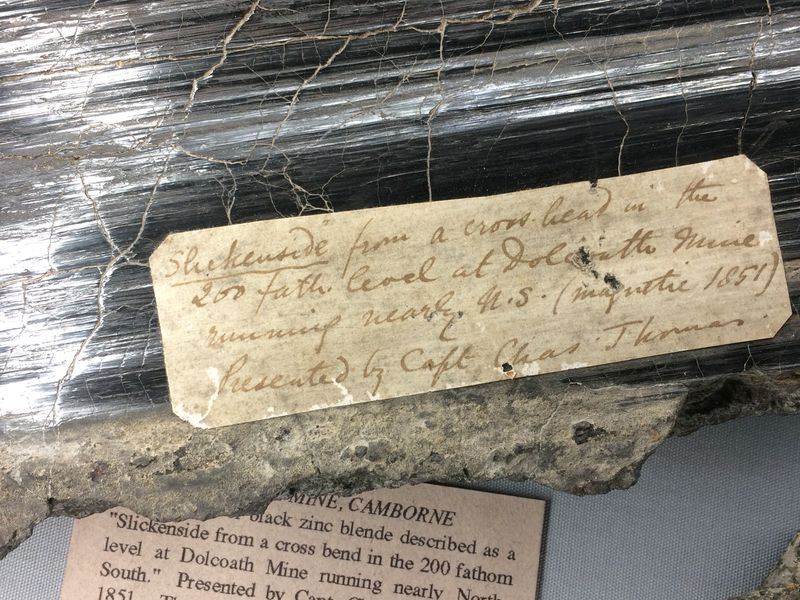 "Slickenside" from a cross head in the
200 fath. level at Dolcoath Mine
running nearly N.S. (magnetic 1851)
Presented by Capt Chas Thomas.
MINE, CAMBORNE
black zinc blende described as a
"Slickenside from a cross bend in the 200 fathom
level at Dolcoath Mine running nearly North
South." Presented by Capt
1851